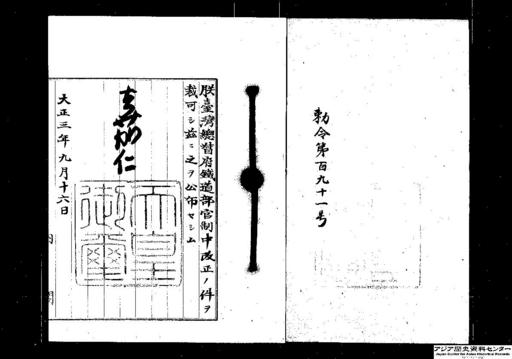 勅令第百九十一号
朕臺灣總督府鐵道部官制中改正ノ件ヲ
裁可シ茲ニ之ヲ公布セシム
嘉仁
天皇御璽
大正三年九月十六日
内閣
アジア歴史資料センター
Japan Center for Asian Historical Records